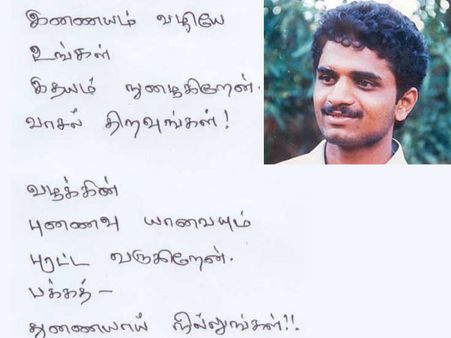 இணையம் வழியே
உங்கள்
இதயம் நுழைகிறேன்.
வாசல் திறவுங்கள்!
வழக்கின்
புனைவு யாவையும்
புரட்ட வருகிறேன்.
பக்கத் –
துணையாய் நில்லுங்கள்!!